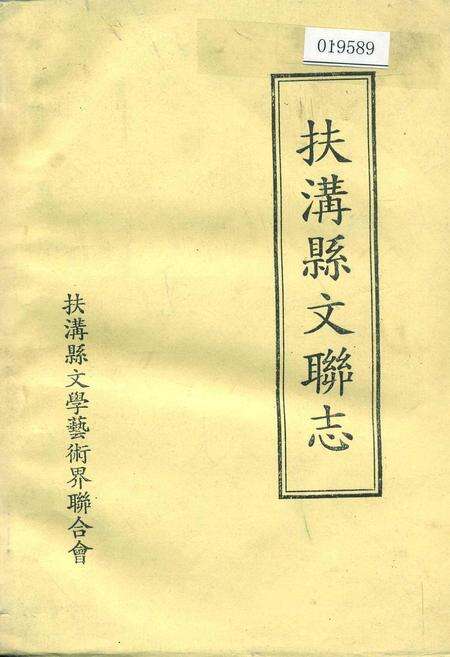 019589
扶溝縣文聯志
扶溝縣文學藝術界聯合會